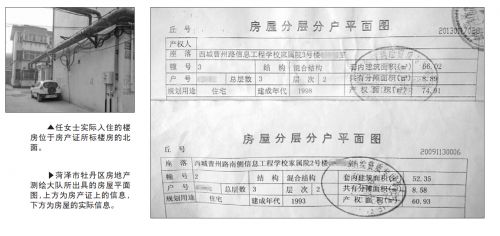 ▲任女士实际入住的楼
房位于房产证所标楼房的北
面。
▶菏泽市牡丹区房地产
测绘大队所出具的房屋平面
图,上方为房产证上的信息,
下方为房屋的实际信息。
房屋分层分户平面图
丘 号
产权人
座 落 西城曹州路信息工程学校家属院3号楼
幢 号 3 结 构 混合结构 套内建筑面积(㎡) 66.02
户 号 总层数 3 层 次 2 共有分摊面积(㎡) 8.89
规划用途 住宅 建成年代 1998 产 权 面 积(㎡) 74.91
房屋分层分户平面图
丘 号 20091130006
座 落 西城曹州路南侧信息工程学校家属院2号楼
幢 号 2 结 构 混合结构 套内建筑面积(㎡) 52.35
户 号 总层数 3 层 次 2 共有分摊面积(㎡) 8.58
规划用途 住宅 建成年代 1993 产 权 面 积(㎡) 60.93